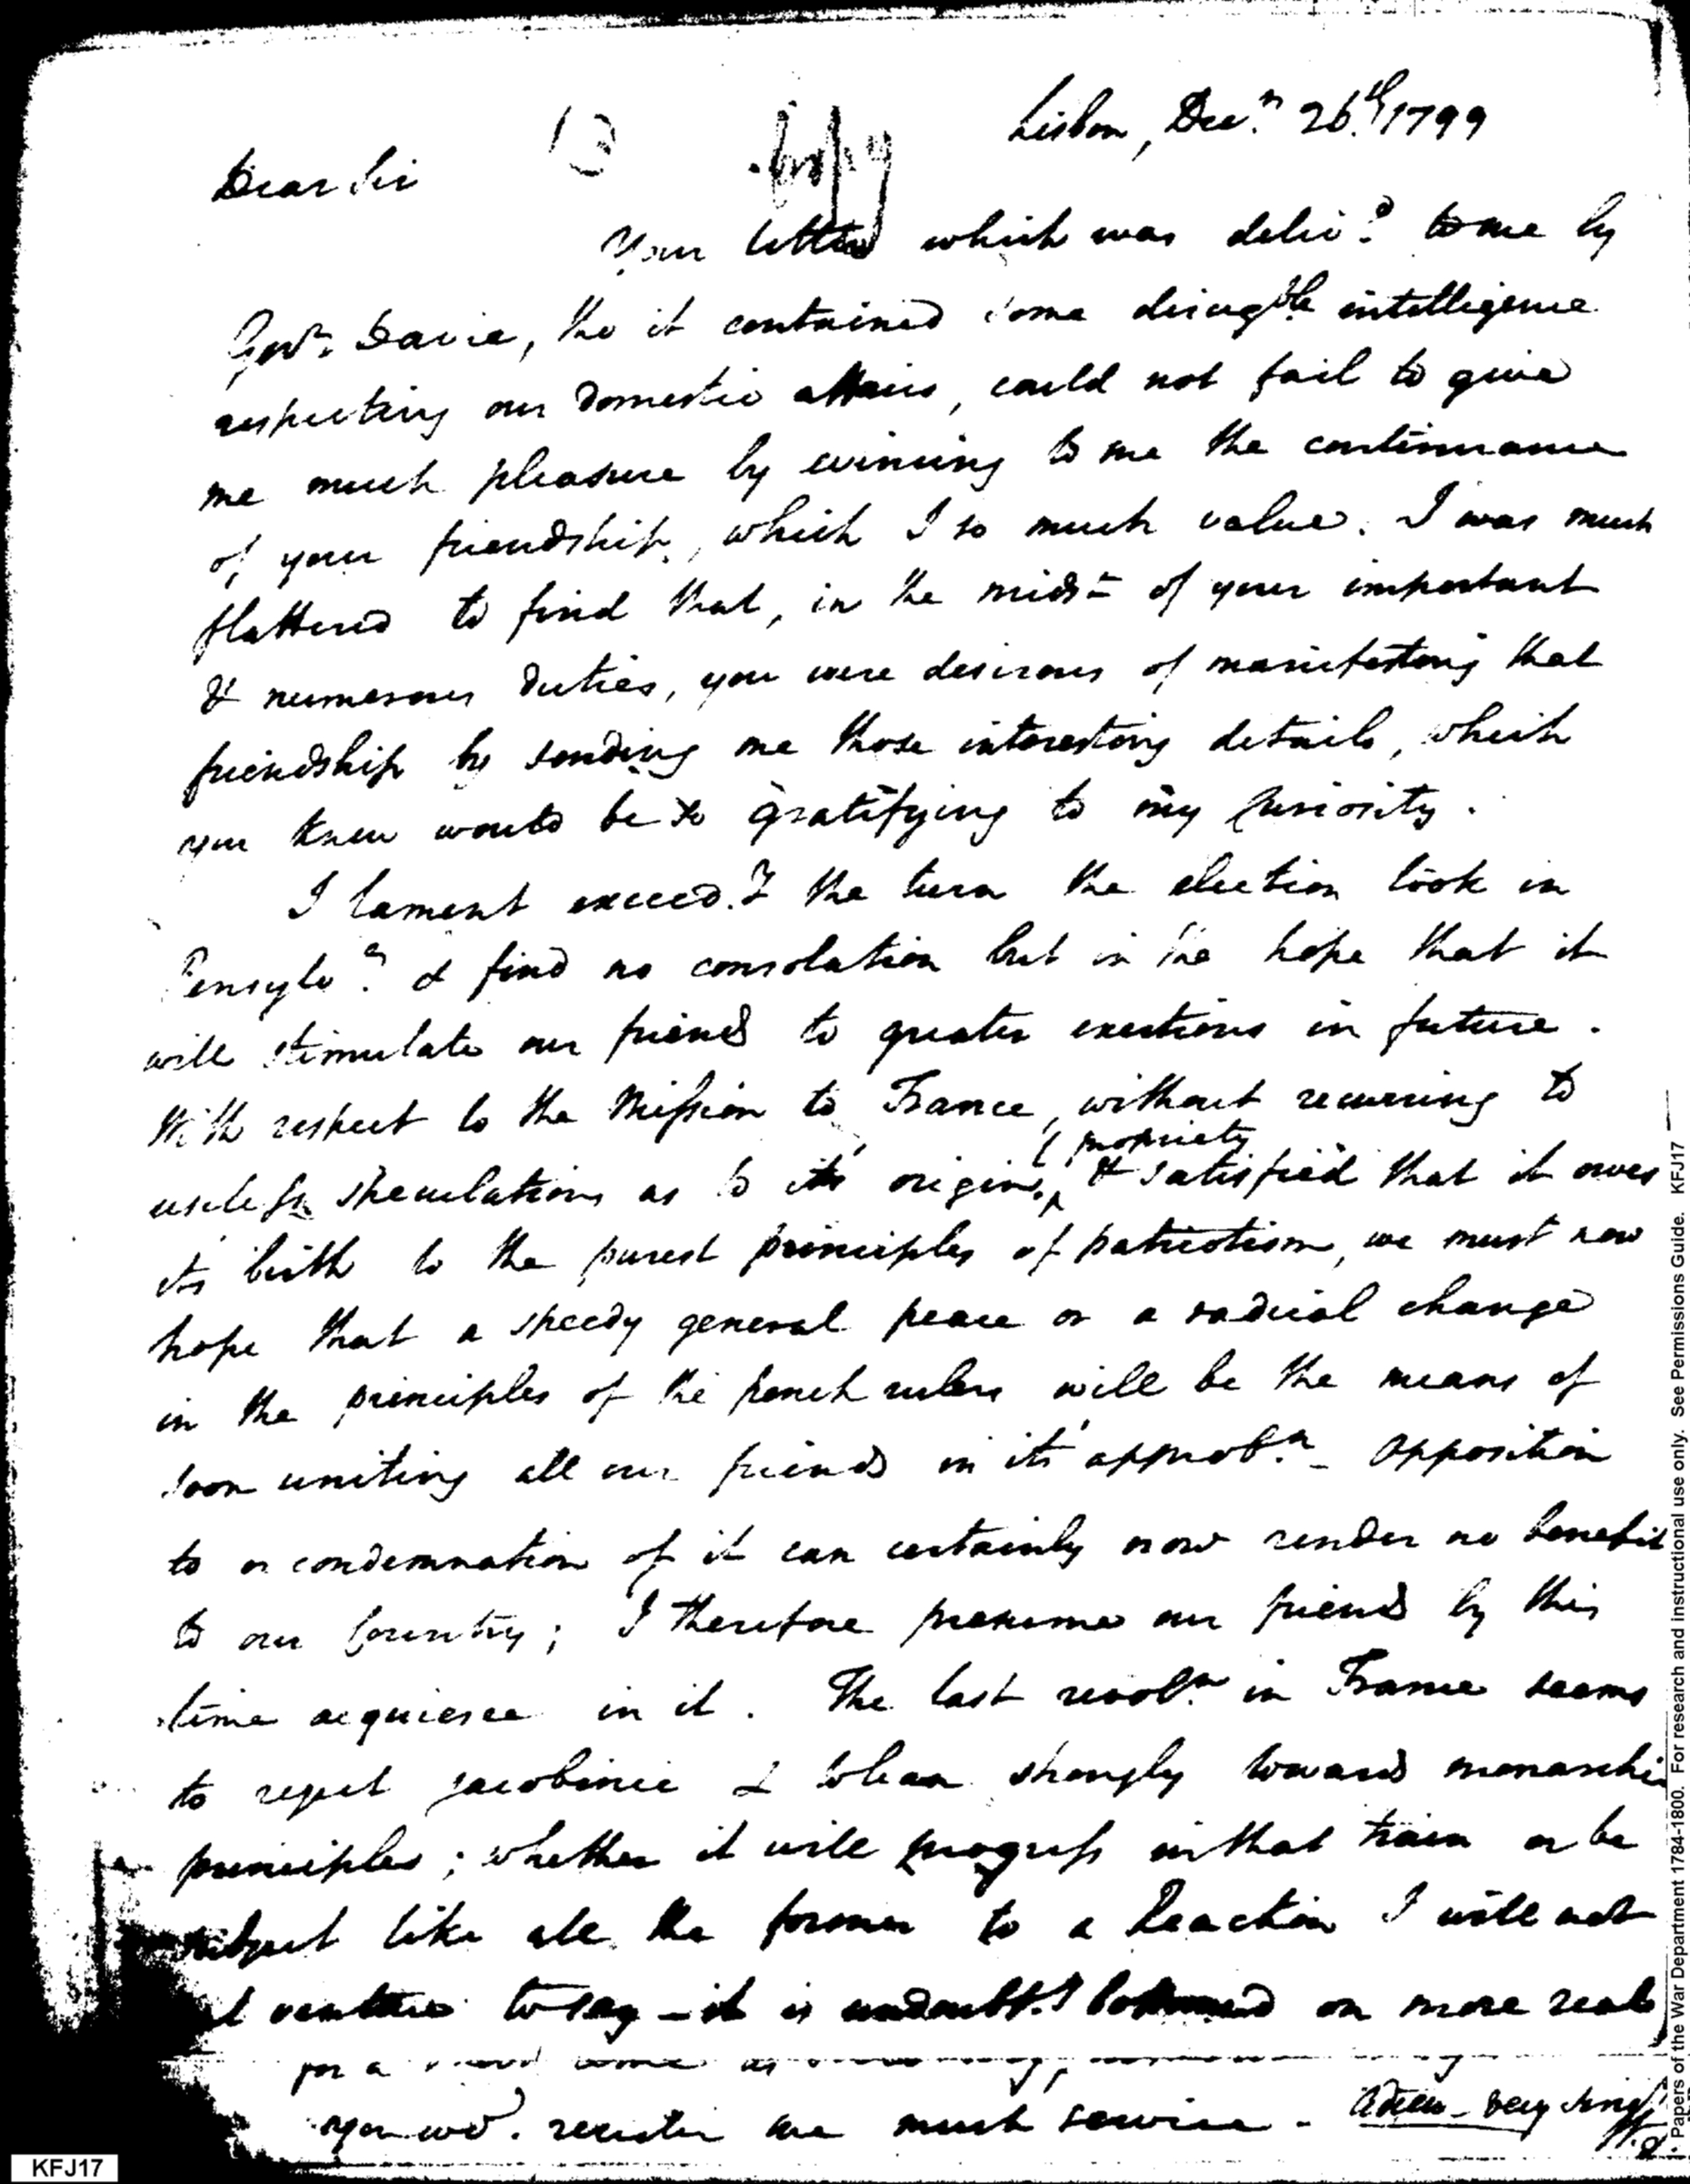 Lisbon, Dec.r 26th 1799
13 Copy
Dear Sir
Your letter which was deliv.d to me by
Gov.r Davie, tho it contained some disagble intelligence
respecting our domestic affairs, could not fail to give
me much pleasure by evincing to me the continuance
of your friendship, which I so much value. I was much
flattered to find that, in the midst of your important
& numerous duties, you were desirous of manifesting that
friendship by sending me those interesting details, which
you knew would be so gratifying to my Curiosity.
I lament exceed.y the turn the election took in
Pensylv.a & find no consolation but in the hope that it
will stimulate our friends to greater exertions in future.
With respect to the Mission to France, without recurring to
useless speculations as to its origin, & satisfied that it owes
propriety
its birth to the purest principles of patriotism, we must now
hope that a speedy general peace or a radical change
in the principles of the french rulers will be the means of
soon uniting all our friends in its approb.n - Opposition
to or condemnation of it can certainly now render no benefit
to our Country; I therefore presume our friends by this
time acquiesce in it. The last revol.n in France seems
to reject jacobinic & to lean strongly towards monarchic
principles; whether it will progress in that train or be
subject like all the former to a Reaction I will not
venture to say - it is undoubt.y bottomed on more real
for a
you wd. render me much service - Adieu - very sincy
KFJ17
Papers of the War Department 1784-1800. For research and instructional use only. See Permissions Guide. KFJ17